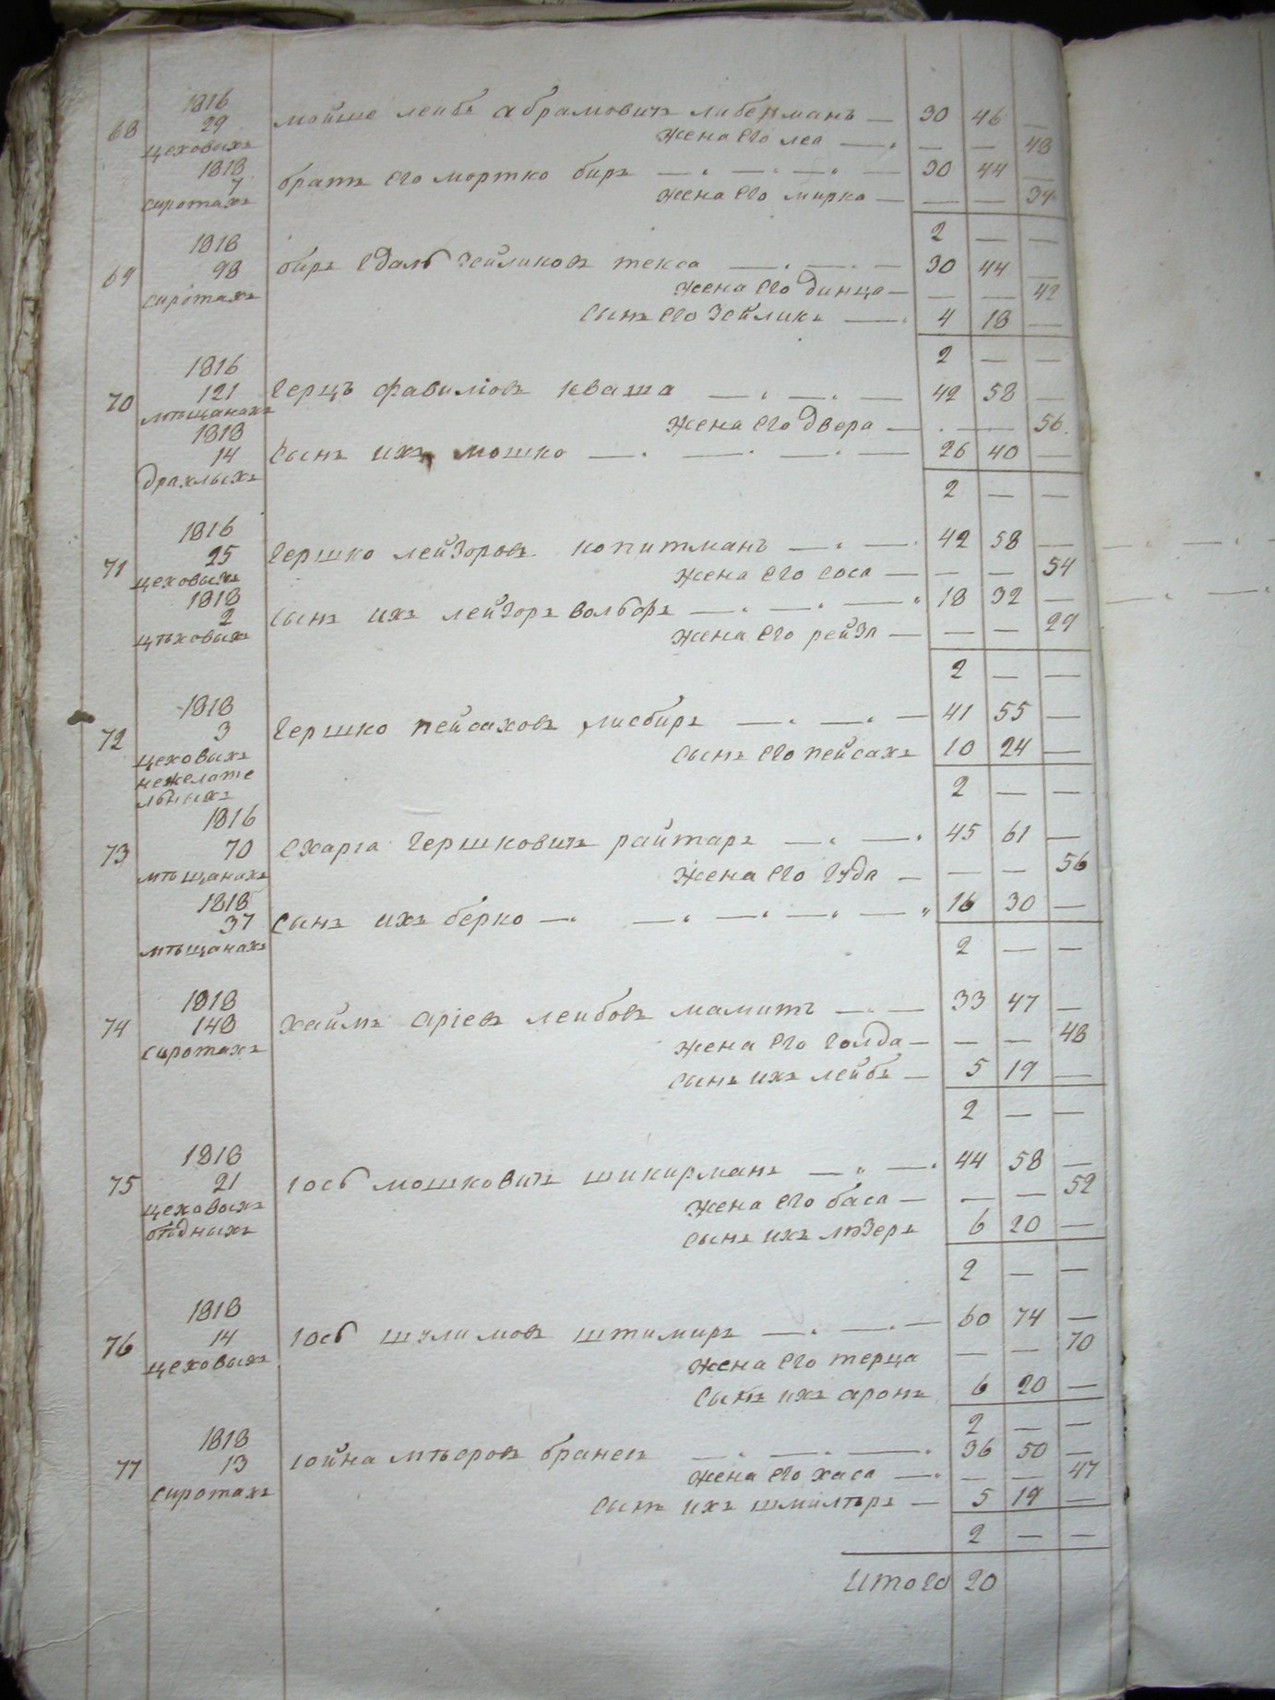 1816
68 29 мойше лейбъ абрамовичъ либерманъ — 30 46 —
цеховыхъ жена его леа — — — 48
1818
7 братъ его мортко биръ — 30 44 —
сиротахъ жена его мирка — — — 34
2 — —
1818
69 98 биръ Едаль зейликовъ текса — 30 44 —
сиротахъ жена его динца — — — 42
сынъ его зейликъ — 4 18 —
2 — —
1816
70 121 герцъ фавишовъ кваша — 42 58 —
мѣщанахъ жена его двера — — — 56
1818
14 сынъ ихъ мошко — 26 40 —
драхлыхъ
2 — —
1816
71 25 гершко лейзоровъ копитманъ — 42 58 —
цеховыхъ жена его соса — — — 54
1818
2 сынъ ихъ лейзоръ вольфъ — 18 32 —
цѣховыхъ жена его рейзя — — — 29
2 — —
1818
72 3 гершко пейсаховъ лисбиръ — 41 55 —
цеховыхъ сынъ его пейсахъ 10 24 —
нежелате
льныхъ 2 — —
1816
73 70 гершковичъ райтаръ — 45 61 —
мѣщанахъ жена его гуда — — — 56
1818
37 сынъ ихъ берко — 16 30 —
мѣщанахъ
2 — —
1818
74 148 хаимъ аріевъ лейбовъ мамитъ — 33 47 —
сиротахъ жена его голда — — — 48
сынъ ихъ лейбъ — 5 19 —
2 — —
1818
75 21 іось мошковичъ шикирманъ — 44 58 —
цеховыхъ жена его баса — — — 52
бѣдныхъ сынъ ихъ лѣзеръ 6 20 —
2 — —
1818
76 14 іось шулимовъ штимиръ — 60 74 —
цеховыхъ жена его терца — — 70
сынъ ихъ аронъ 6 20 —
2 — —
1818
77 13 іойна мѣеровъ бранев — 36 50 —
сиротахъ жена его хаса — — — 47
сынъ ихъ шмилѣръ — 5 19 —
2 — —
Итого 20